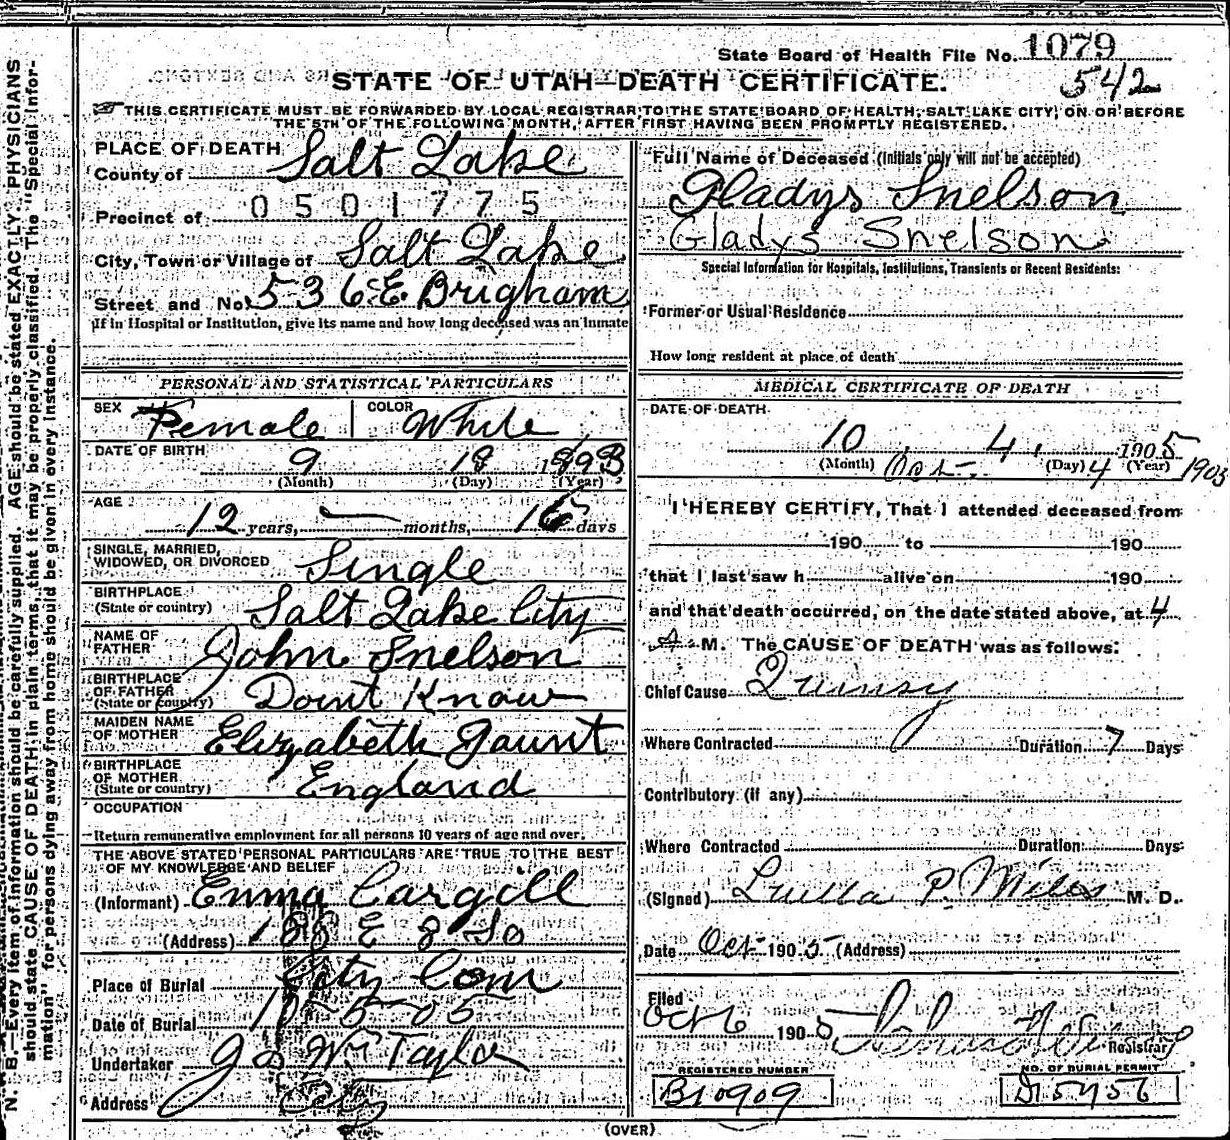 State Board of Health File No. 1079
542
STATE OF UTAH—DEATH CERTIFICATE.
THIS CERTIFICATE MUST BE FORWARDED BY LOCAL REGISTRAR TO THE STATE BOARD OF HEALTH, SALT LAKE CITY, ON OR BEFORE
THE 5TH OF THE FOLLOWING MONTH, AFTER FIRST HAVING BEEN PROMPTLY REGISTERED.
N. B.—Every item of information should be carefully supplied. AGE should be stated EXACTLY. PHYSICIANS
should state CAUSE OF DEATH in plain terms, that it may be properly classified. The "Special Infor-
mation" for persons dying away from home should be given in every instance.
PLACE OF DEATH
County of Salt Lake
Precinct of 0501775
City, Town or Village of Salt Lake
Street and No. 536 E. Brigham
If in Hospital or Institution, give its name and how long deceased was an inmate
PERSONAL AND STATISTICAL PARTICULARS
SEX Female COLOR White
DATE OF BIRTH 9 18 1893
(Month) (Day) (Year)
AGE 12 years, — months, 16 days
SINGLE, MARRIED,
WIDOWED, OR DIVORCED Single
BIRTHPLACE
(State or country) Salt Lake City
NAME OF
FATHER John Snelson
BIRTHPLACE
OF FATHER
(State or country) Dont Know
MAIDEN NAME
OF MOTHER Elizabeth Gaunt
BIRTHPLACE
OF MOTHER
(State or country) England
OCCUPATION
Return remunerative employment for all persons 10 years of age and over.
THE ABOVE STATED PERSONAL PARTICULARS ARE TRUE TO THE BEST
OF MY KNOWLEDGE AND BELIEF
(Informant) Emma Cargill
(Address) E 8 So
Place of Burial City Cem
Date of Burial 10-5-05
Undertaker Jos Wm Taylor
Address City
Full Name of Deceased (Initials only will not be accepted)
Gladys Snelson
Gladys Snelson
Special Information for Hospitals, Institutions, Transients or Recent Residents:
Former or Usual Residence
How long resident at place of death
MEDICAL CERTIFICATE OF DEATH
DATE OF DEATH
10 4, 1905
(Month) Oct- (Day) 4 (Year) 1905
I HEREBY CERTIFY, That I attended deceased from
190 to 190
that I last saw h alive on 190
and that death occurred, on the date stated above, at 4
A M. The CAUSE OF DEATH was as follows:
Chief Cause Quinsy
Where Contracted Duration 7 Days
Contributory (if any)
Where Contracted Duration Days
(Signed) Luella P. Miles M. D.
Date Oct- 1905 (Address)
Filed
Oct 6 1905
Registrar
REGISTERED NUMBER
B10909
NO. OF BURIAL PERMIT
D15456
(OVER)